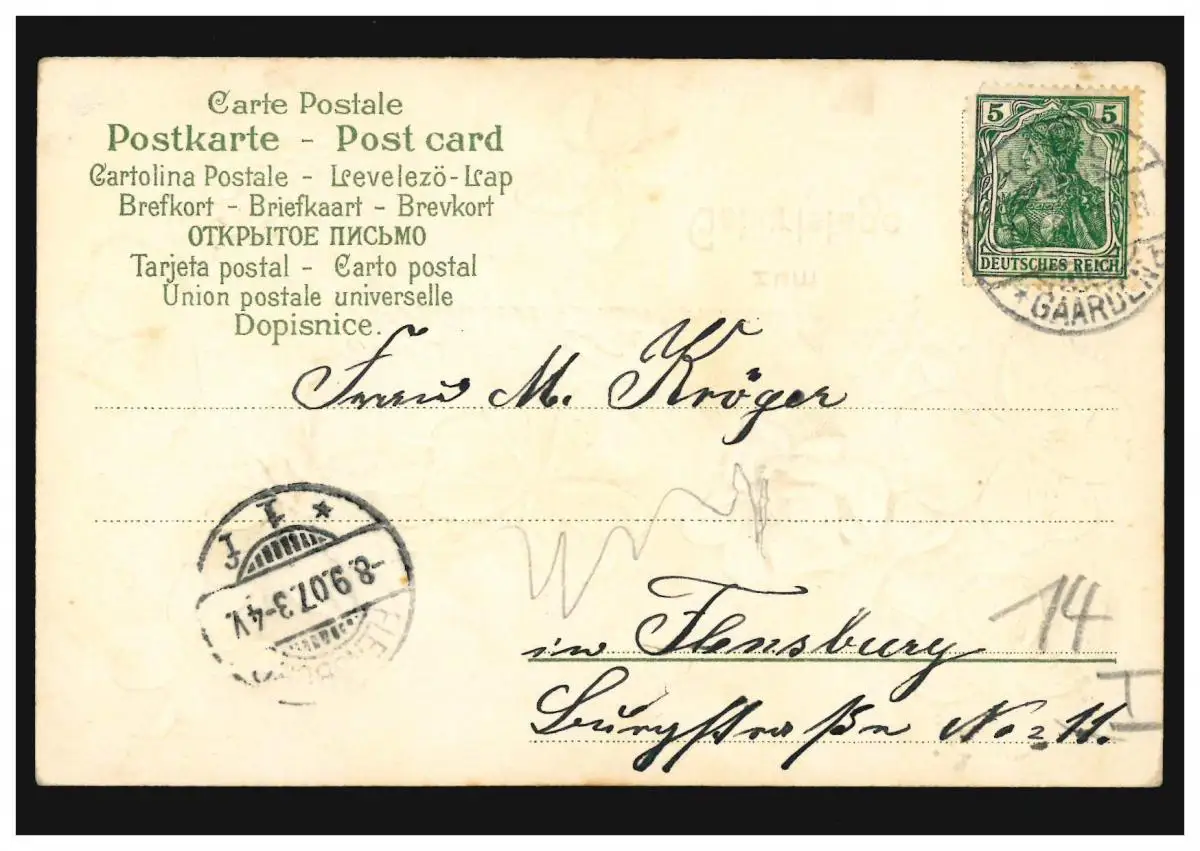 Carte Postale
Postkarte - Post card
Cartolina Postale - Levelezö-Lap
Brefkort - Briefkaart - Brevkort
ОТКРЫТОЕ ПИСЬМО
Tarjeta postal - Carto postal
Union postale universelle
Dopisnice.
5 5
DEUTSCHES REICH
* GAARDEN
Frau M. Kröger
* 1 f
-8.9.07.3-4V.
14
in Flensburg
Burgstraße No 11.